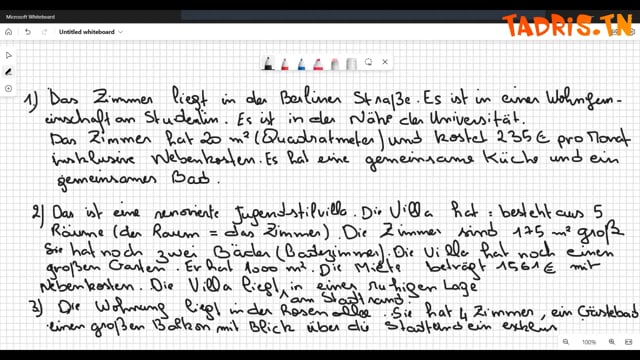 Microsoft Whiteboard
TADRIS.TN
Untitled whiteboard
1) Das Zimmer liegt in der Berliner Straße. Es ist in einer Wohngem-
einschaft an Studentin. Es ist in der Nähe der Universität.
Das Zimmer hat 20 m² (Quadratmeter) und kostet 235 € pro Monat
inklusive Nebenkosten. Es hat eine gemeinsame Küche und ein
gemeinsames Bad.
2) Das ist eine renovierte Jugendstilvilla. Die Villa hat : besteht aus 5
Räume (der Raum = das Zimmer). Die Zimmer sind 175 m² groß
Sie hat noch zwei Bäder (Badezimmer). Die Villa hat noch einen
großen Garten. Er hat 1000 m². Die Miete beträgt 1561 € mit
Nebenkosten. Die Villa liegt in einer ruhigen Lage
am Stadtrand.
3) Die Wohnung liegt in der Rosenallee. Sie hat 4 Zimmer, ein Gästebad
einen großen Balkon mit Blick über die Stadt und ein
100%